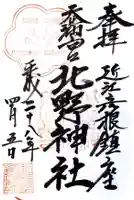 奉拝
近江彦根鎮座
天満宮
北野神社
平成二十八年
四月二日